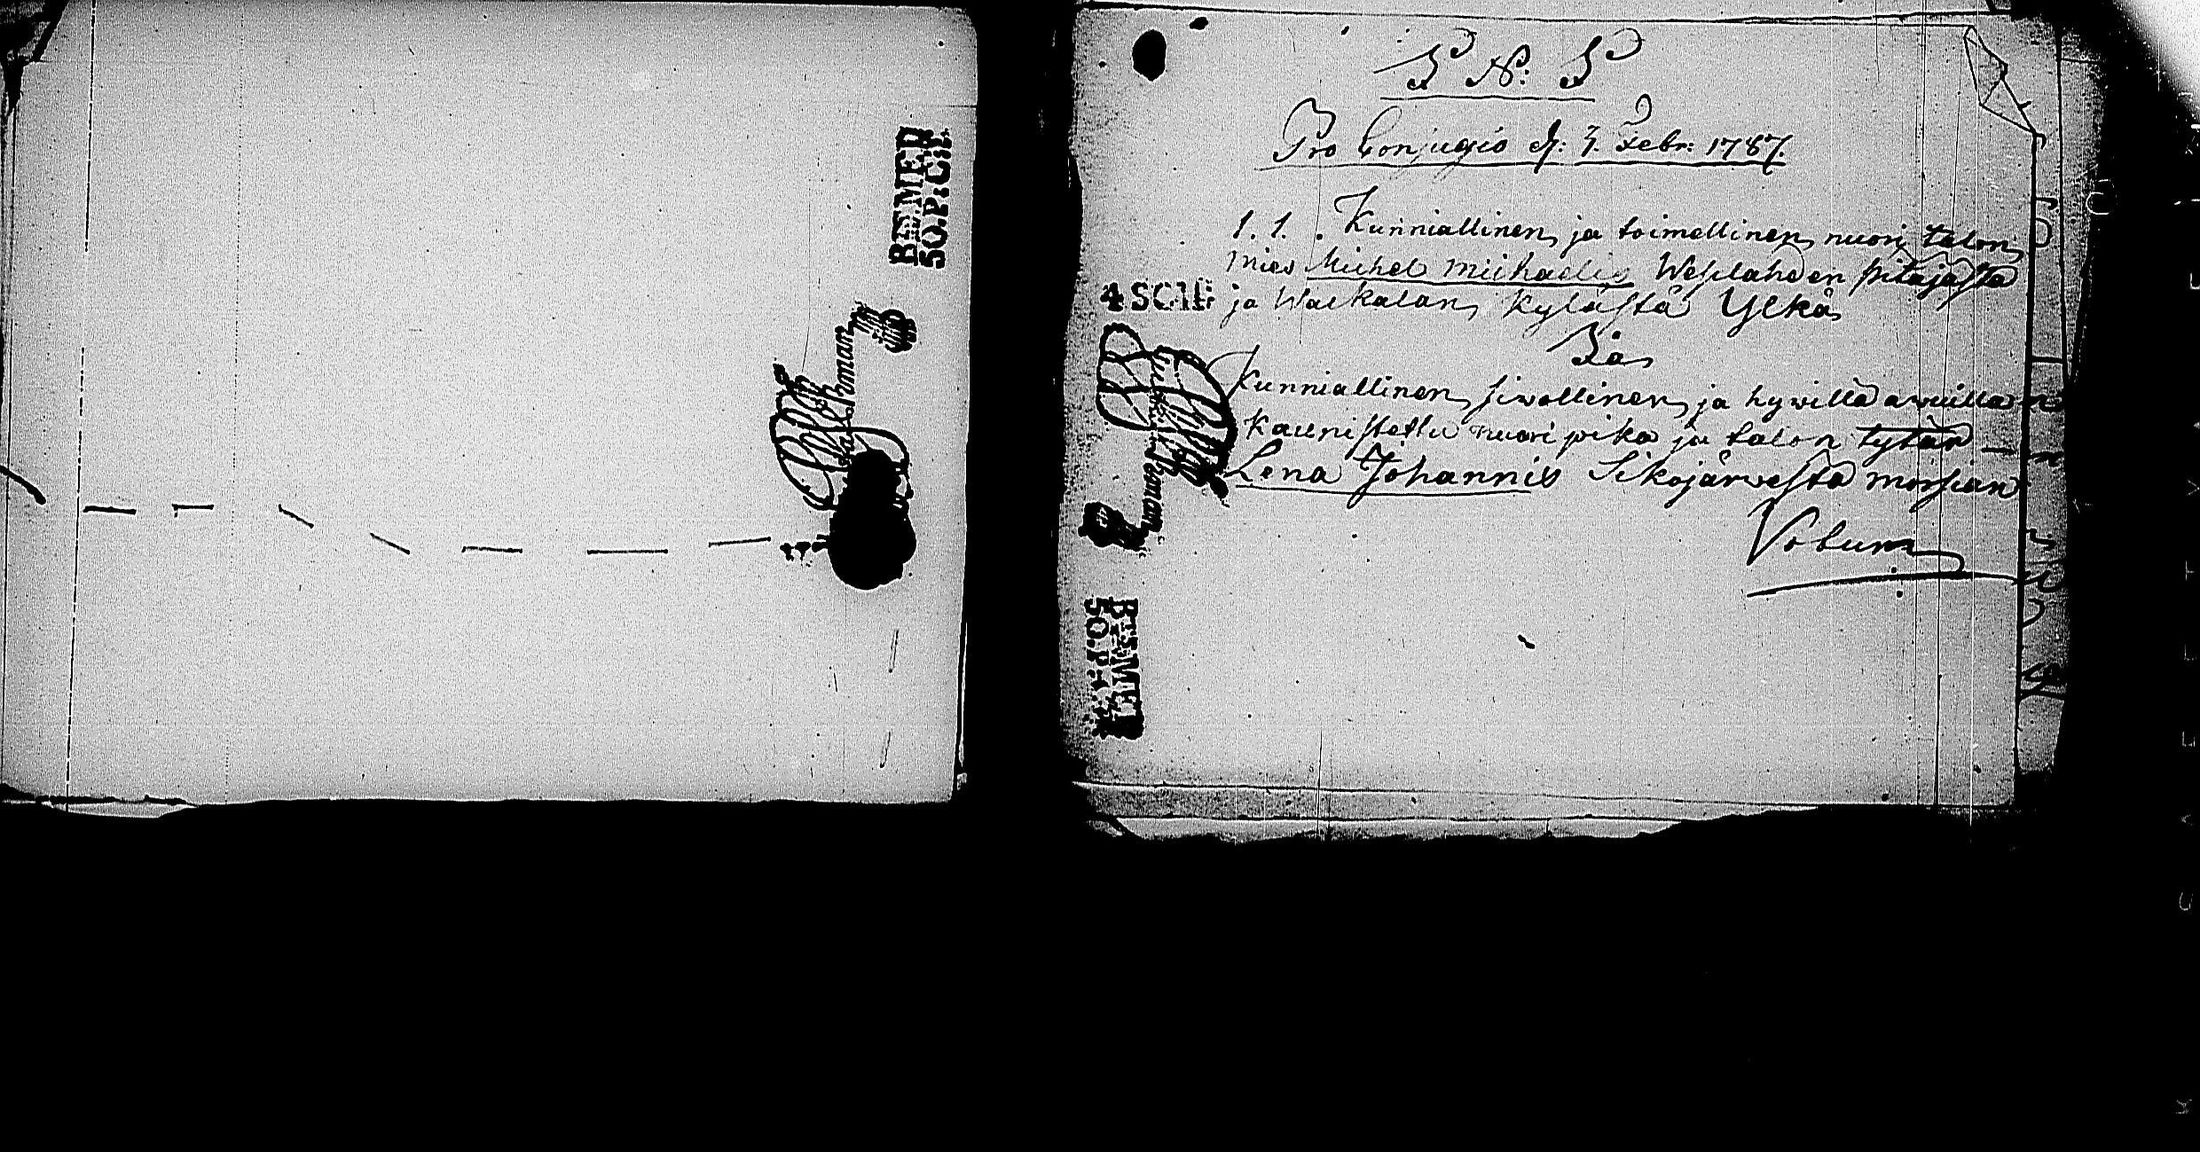 BIEMER
5O.P:C:L.
J N: J
Pro Conjugio d: 3. Febr: 1787.
1. 1. Kunniallinen ja toimellinen nuori talon
mies Michel Michaelis Weslahden pitäjästä
ja Waikalan kylästä Ylkä
Ja
Kunniallinen siwollinen ja hywillä awuilla
kaunistettu nuori pika ja talon tytär
Lena Johannis Sikojärwestä morsian
Votum
4 SC1E